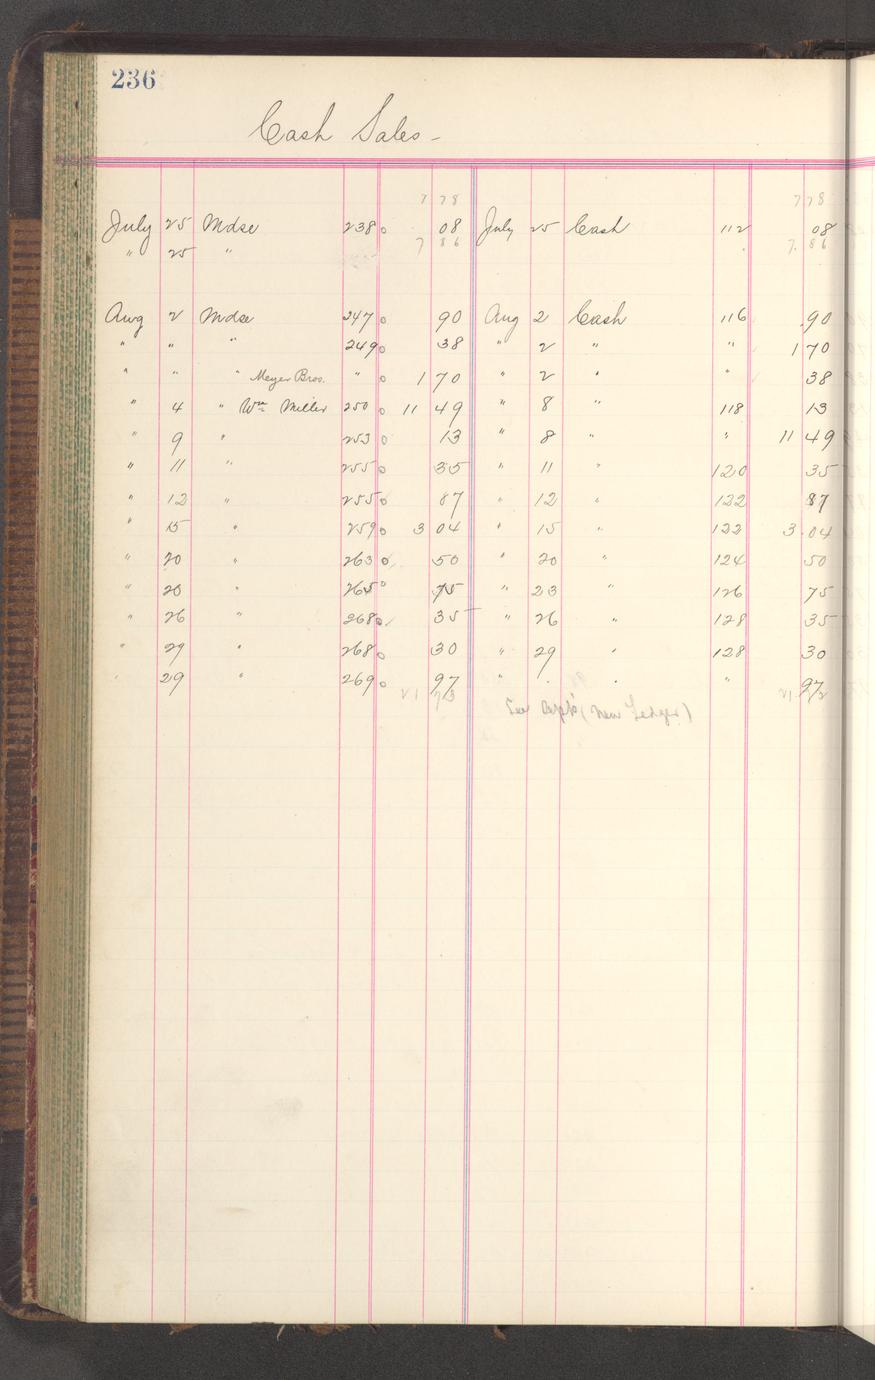 236
Cash Sales -
7 78 7 78
July 25 Mdse 238 0 08 July 25 Cash 112 08
7 86 7. 86
" 25 "
Aug 2 Mdse 247 0 90 Aug 2 Cash 116 .90
" " " 249 0 38 " 2 " " 1 70
" " " Meyer Bros. " 0 1 70 " 2 " " 38
" 4 " Wm Miller 250 0 11 49 " 8 " 118 13
" 9 " 253 0 13 " 8 " " 11 49
" 11 " 255 0 35 " 11 " 120 35
" 12 " 255 0 87 " 12 " 122 87
" 15 " 259 0 3 04 " 15 " 122 3.04
" 20 " 263 0 50 " 20 " 124 50
" 20 " 265 0 75 " 23 " 126 75
" 26 " 268 0 35 " 26 " 128 35
" 29 " 268 0 30 " 29 " 128 30
" 29 " 269 0 97 " " " " 97
21 73 21
(New Ledger)